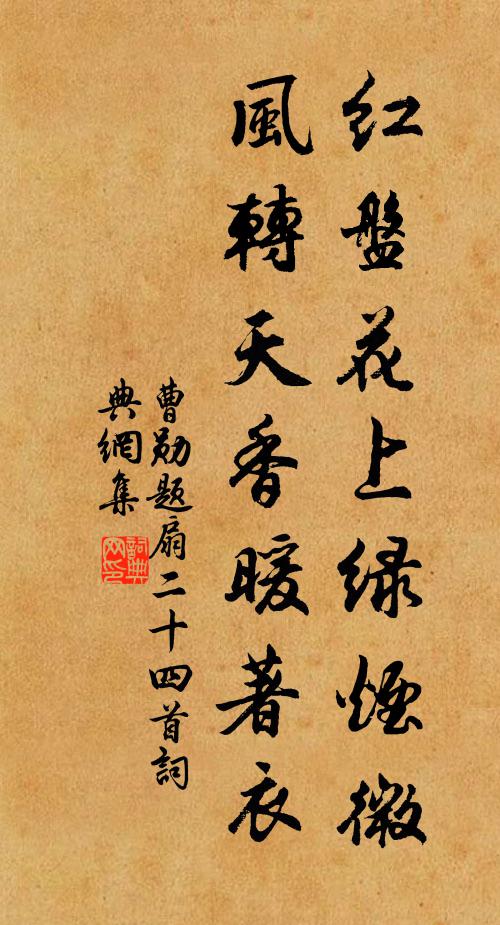 红盤花上緑煙微
風轉天香暖著衣
曹勛題扇二十四首詞
典網集
詞典网印